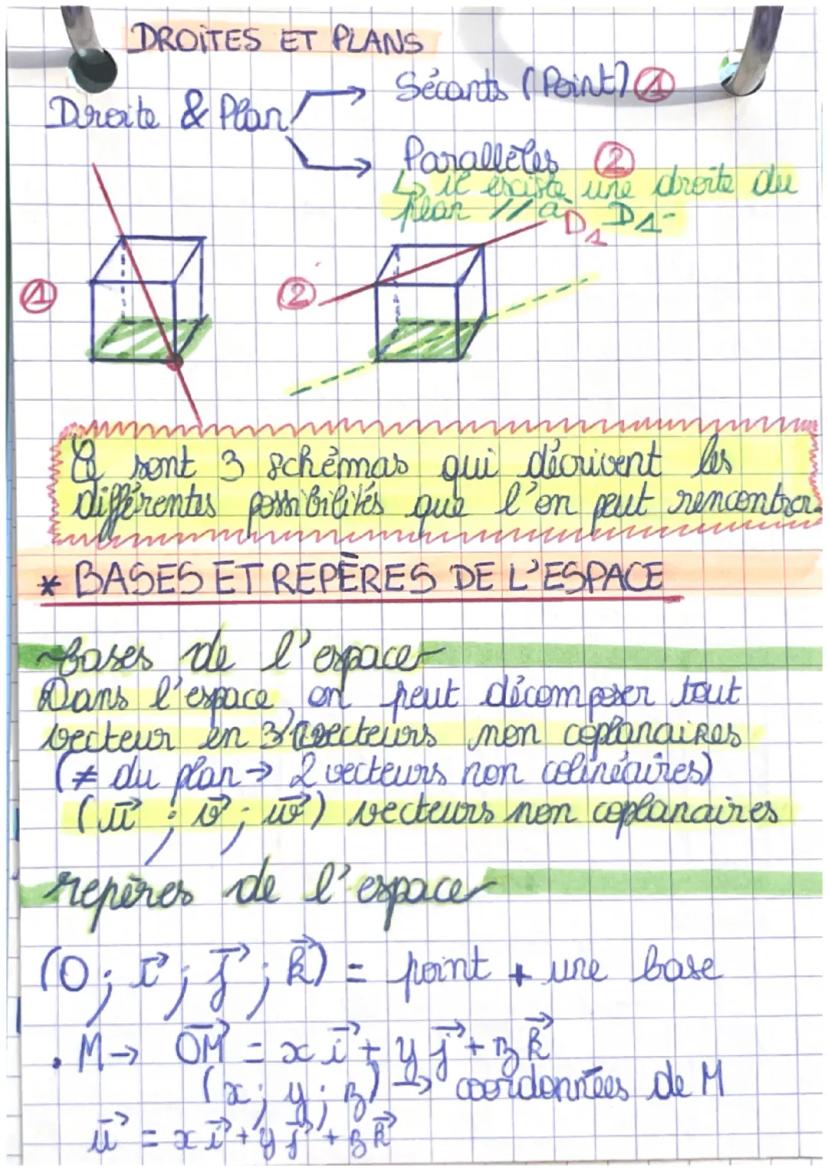 DROITES ET PLANS
Droite & Plan
Sécants (Point) ①
Parallèles ②
↳ il existe une droite du
plan // à D1.
D1
① ②
Ce sont 3 schémas qui décrivent les
différentes possibilités que l'on peut rencontrer.
* BASES ET REPÈRES DE L'ESPACE
bases de l'espace
Dans l'espace, on peut décomposer tout
vecteur en 3 vecteurs non coplanaires
(≠ du plan → 2 vecteurs non colinéaires)
(u⃗ ; v⃗ ; w⃗) vecteurs non coplanaires
repères de l'espace
(O ; i⃗ ; j⃗ ; k⃗) = point + une base
. M → OM⃗ = x i⃗ + y j⃗ + z k⃗
(x ; y ; z) → coordonnées de M
u⃗ = x i⃗ + y j⃗ + z k⃗